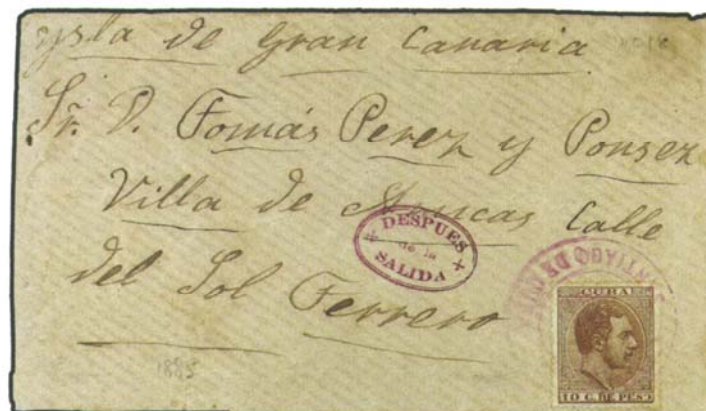 ysla de Gran Canaria
Sr. D. Tomás Perez y Ponsez
Villa de Arucas Calle
del Sol Ferrero
DESPUES
de la
SALIDA
SANTIAGO DE CUBA
CUBA
10 C. DE PESO
1885